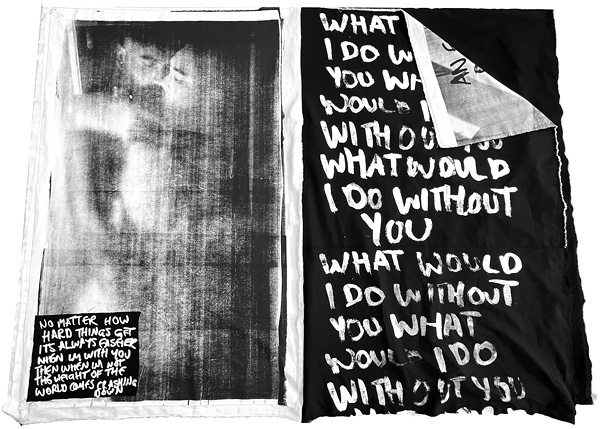 NO MATTER HOW
HARD THINGS GET
ITS ALWAYS EASIER
WHEN IM WITH YOU
THEN WHEN IM NOT
THE WEIGHT OF THE
WORLD COMES CRASHING
DOWN
WHAT
I DO W
YOU WH
WOULD I
WITHOUT YOU
WHAT WOULD
I DO WITHOUT
YOU
WHAT WOULD
I DO WITHOUT
YOU WHAT
WOULD I DO
WITHOUT YOU